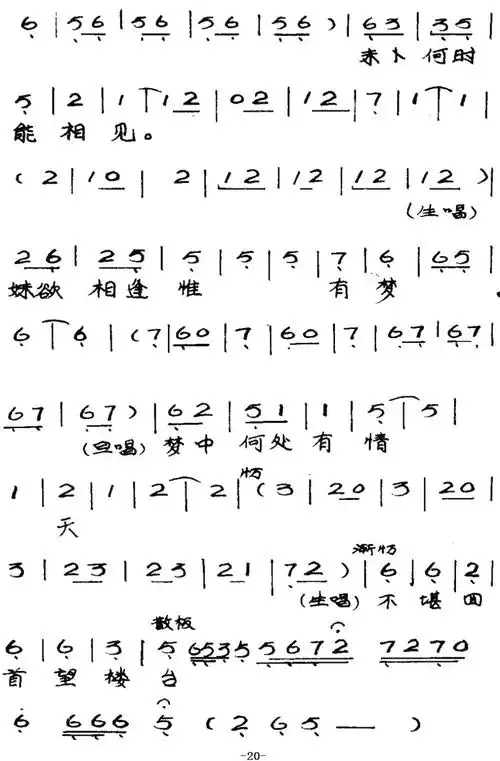 6 | 56 | 56 | 56 | 56 ) | 63 | 35 |
未卜 何时
5 | 2 | 1 | 12 | 02 | 12 | 7 | 1 | 1
能 相 见。
( 2 | 10 | 2 | 12 | 12 | 12 | 12 ) |
(生唱)
26 | 25 | 5 | 5 | 5 | 7 | 6 | 65 |
妹欲 相逢 惟 有 梦 。
6 | 6 | (7 | 60 | 7 | 60 | 7 | 67 | 67 |
67 | 67 ) | 62 | 51 | 1 | 5 | 5 |
(旦唱) 梦中 何处 有 情
1 | 2 | 1 | 2 | 2 | (3 | 20 | 3 | 20 |
天
3 | 23 | 23 | 21 | 72 ) | 6 | 6 | 2 |
(生唱) 不 堪 回
散板
6 | 6 | 3 | 5 6535 5672 7270
首 望 楼 台
6 666 5 ( 2 6 5 — )
-20-